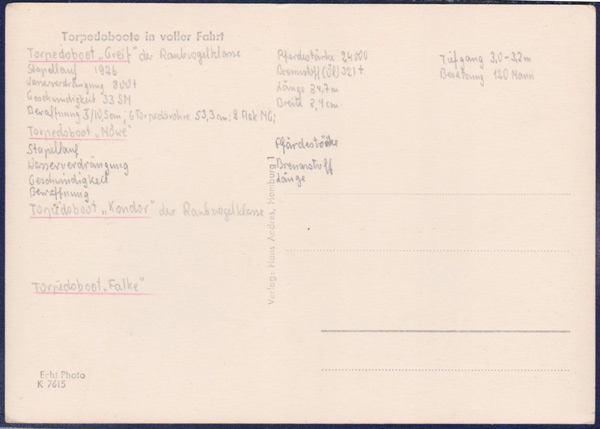 Torpedoboote in voller Fahrt
Torpedoboot „Greif" der Raubvogelklasse
Stapellauf 1926
Wasserverdrängung 800 t
Geschwindigkeit 33 SM
Bewaffnung 3/10,5cm; 6 Torpedorohre 53,3cm; 2 Flak MG;
Pferdestärke 24000
Brennstoff (Öl) 321 t
Länge 84,7m
Breite 8,4cm
Tiefgang 3,0-3,2m
Besatzung 120 Mann
Torpedoboot „Möwe"
Stapellauf
Wasserverdrängung
Geschwindigkeit
Bewaffnung
Pferdestärke
Brennstoff
Länge
Torpedoboot „Kondor" der Raubvogelklasse
Torpedoboot „Falke"
Verlag: Hans Andres, Hamburg 1
Echt Photo
K 7615